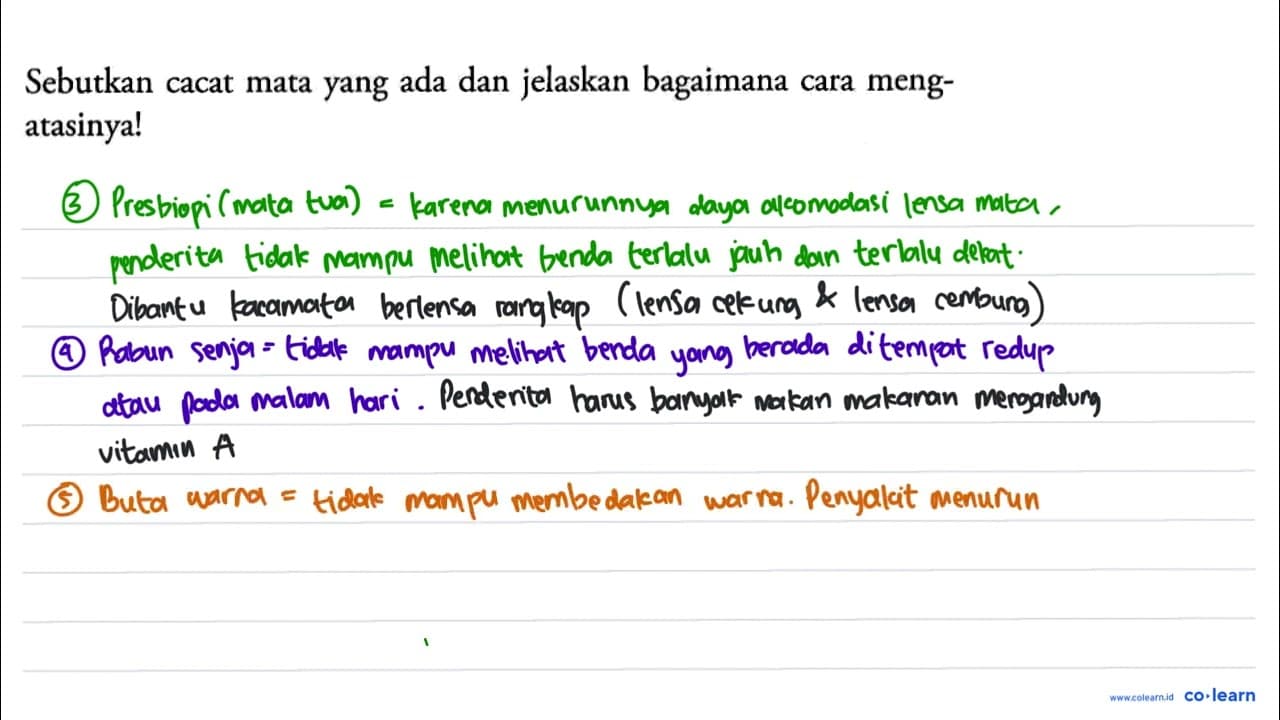 Sebutkan cacat mata yang ada dan jelaskan bagaimana cara meng-
atasinya!
③ Presbiopi (mata tua) = karena menurunnya daya akomodasi lensa mata,
penderita tidak mampu melihat benda terlalu jauh dan terlalu dekat.
Dibantu kacamata berlensa rangkap (lensa cekung & lensa cembung)
④ Rabun senja = tidak mampu melihat benda yang berada ditempat redup
atau pada malam hari. Penderita harus banyak makan makanan mengandung
vitamin A
⑤ Buta warna = tidak mampu membedakan warna. Penyakit menurun
www.colearn.id co·learn